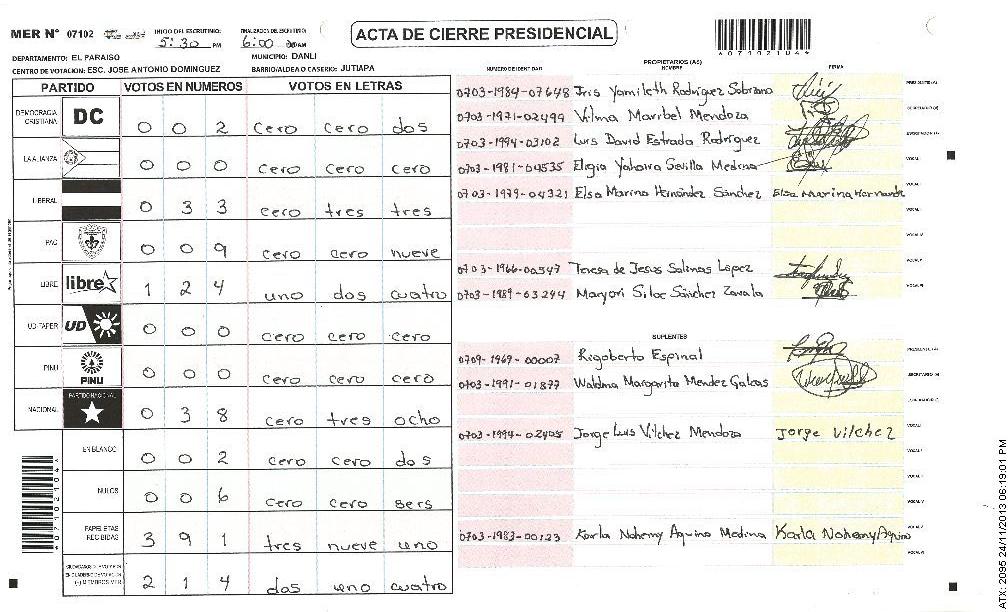 MER N° 07102
INICIO DEL ESCRUTINIO:
5:30 PM
FINALIZACION DEL ESCRUTINIO:
6:00
ACTA DE CIERRE PRESIDENCIAL
DEPARTAMENTO: EL PARAISO
MUNICIPIO: DANLI
CENTRO DE VOTACION: ESC. JOSE ANTONIO DOMINGUEZ
BARRIO/ALDEA O CASERIO: JUTIAPA
PARTIDO VOTOS EN NUMEROS VOTOS EN LETRAS
DEMOCRACIA CRISTIANA DC 0 0 2 cero cero dos
LA ALIANZA 0 0 0 cero cero cero
LIBERAL 0 3 3 cero tres tres
PAC 0 0 9 cero cero nueve
LIBRE libre 1 2 4 uno dos cuatro
UD-FAPER UD 0 0 0 cero cero cero
PINU PINU 0 0 0 cero cero cero
NACIONAL PARTIDO NACIONAL 0 3 8 cero tres ocho
EN BLANCO 0 0 2 cero cero dos
NULOS 0 0 6 cero cero seis
PAPELETAS RECIBIDAS 3 9 1 tres nueve uno
2 1 4 dos uno cuatro
PROPIETARIOS (AS)
NUMERO DE IDENTIDAD NOMBRE FIRMA
0703-1984-07648 Iris Yamileth Rodríguez Sobrano
0703-1971-02499 Vilma Maribel Mendoza
0703-1994-03102 Luis David Estrada Rodríguez
0703-1981-04535 Eligia Yahaira Sevilla Medina
0703-1979-04321 Elsa Marina Hernández Sánchez Elsa Marina Hernandez
0703-1966-00547 Teresa de Jesus Salinas Lopez
0703-1989-03294 Maryori Siloe Sánchez Zavala
SUPLENTES
0709-1969-00007 Rigoberto Espinal
0703-1991-01877 Waldina Margarita Mendez Galeas
0703-1994-02405 Jorge Luis Vilchez Mendoza Jorge Vilchez
0703-1983-00123 Karla Nohemy Aquino Medina Karla Nohemy Aquino
ATX: 2095 24/11/2013 06:19:01 PM